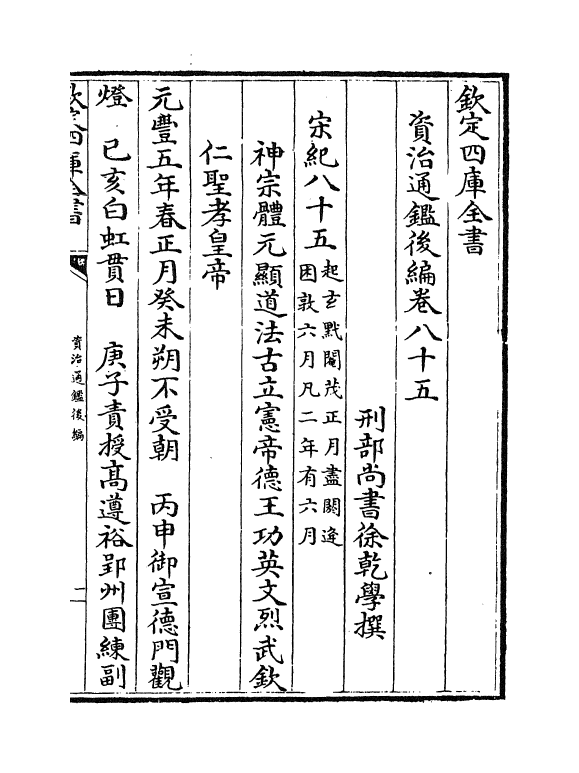 欽定四庫全書
資治通鑑後編卷八十五
刑部尚書徐乾學撰
宋紀八十五起玄黓閹茂正月盡閼逄
困敦六月凡二年有六月
神宗體元顯道法古立憲帝德王功英文烈武欽
仁聖孝皇帝
元豐五年春正月癸未朔不受朝　丙申御宣德門觀
燈　己亥白虹貫日　庚子責授高遵裕郢州團練副
欽定四庫全書
資治通鑑後編